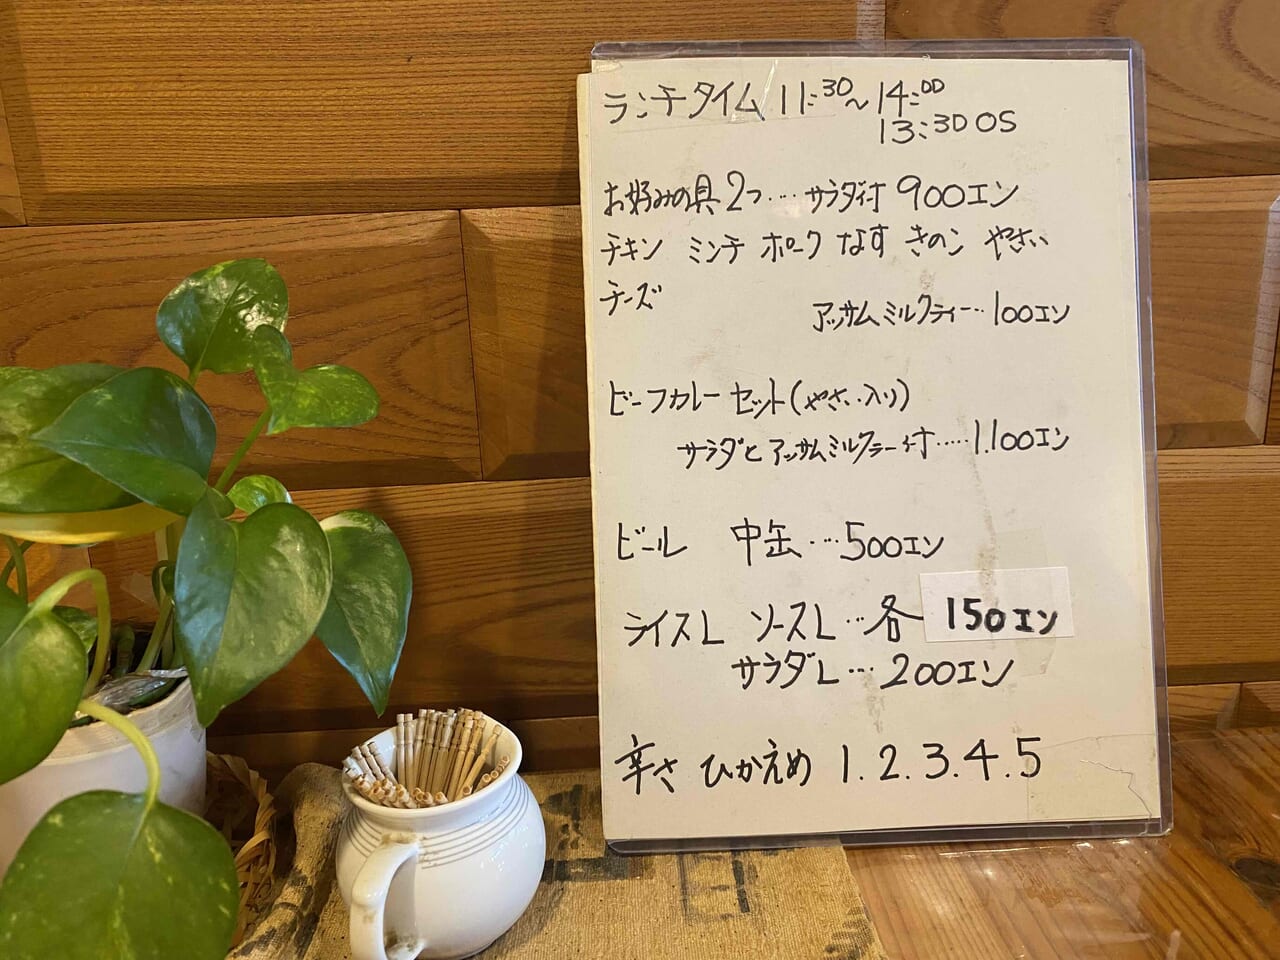 ランチタイム 11:30〜14:00
13:30 OS
お好みの具2つ‥‥サラダ付 900エン
チキン ミンチ ポーク なす きのこ やさい
チーズ
アッサムミルクティー‥100エン
ビーフカレーセット(やさい入り)
サラダとアッサムミルクティー付‥‥‥1.100エン
ビール 中缶‥‥500エン
ライスL ソースL‥‥各 150エン
サラダL‥‥200エン
辛さ ひかえめ 1.2.3.4.5